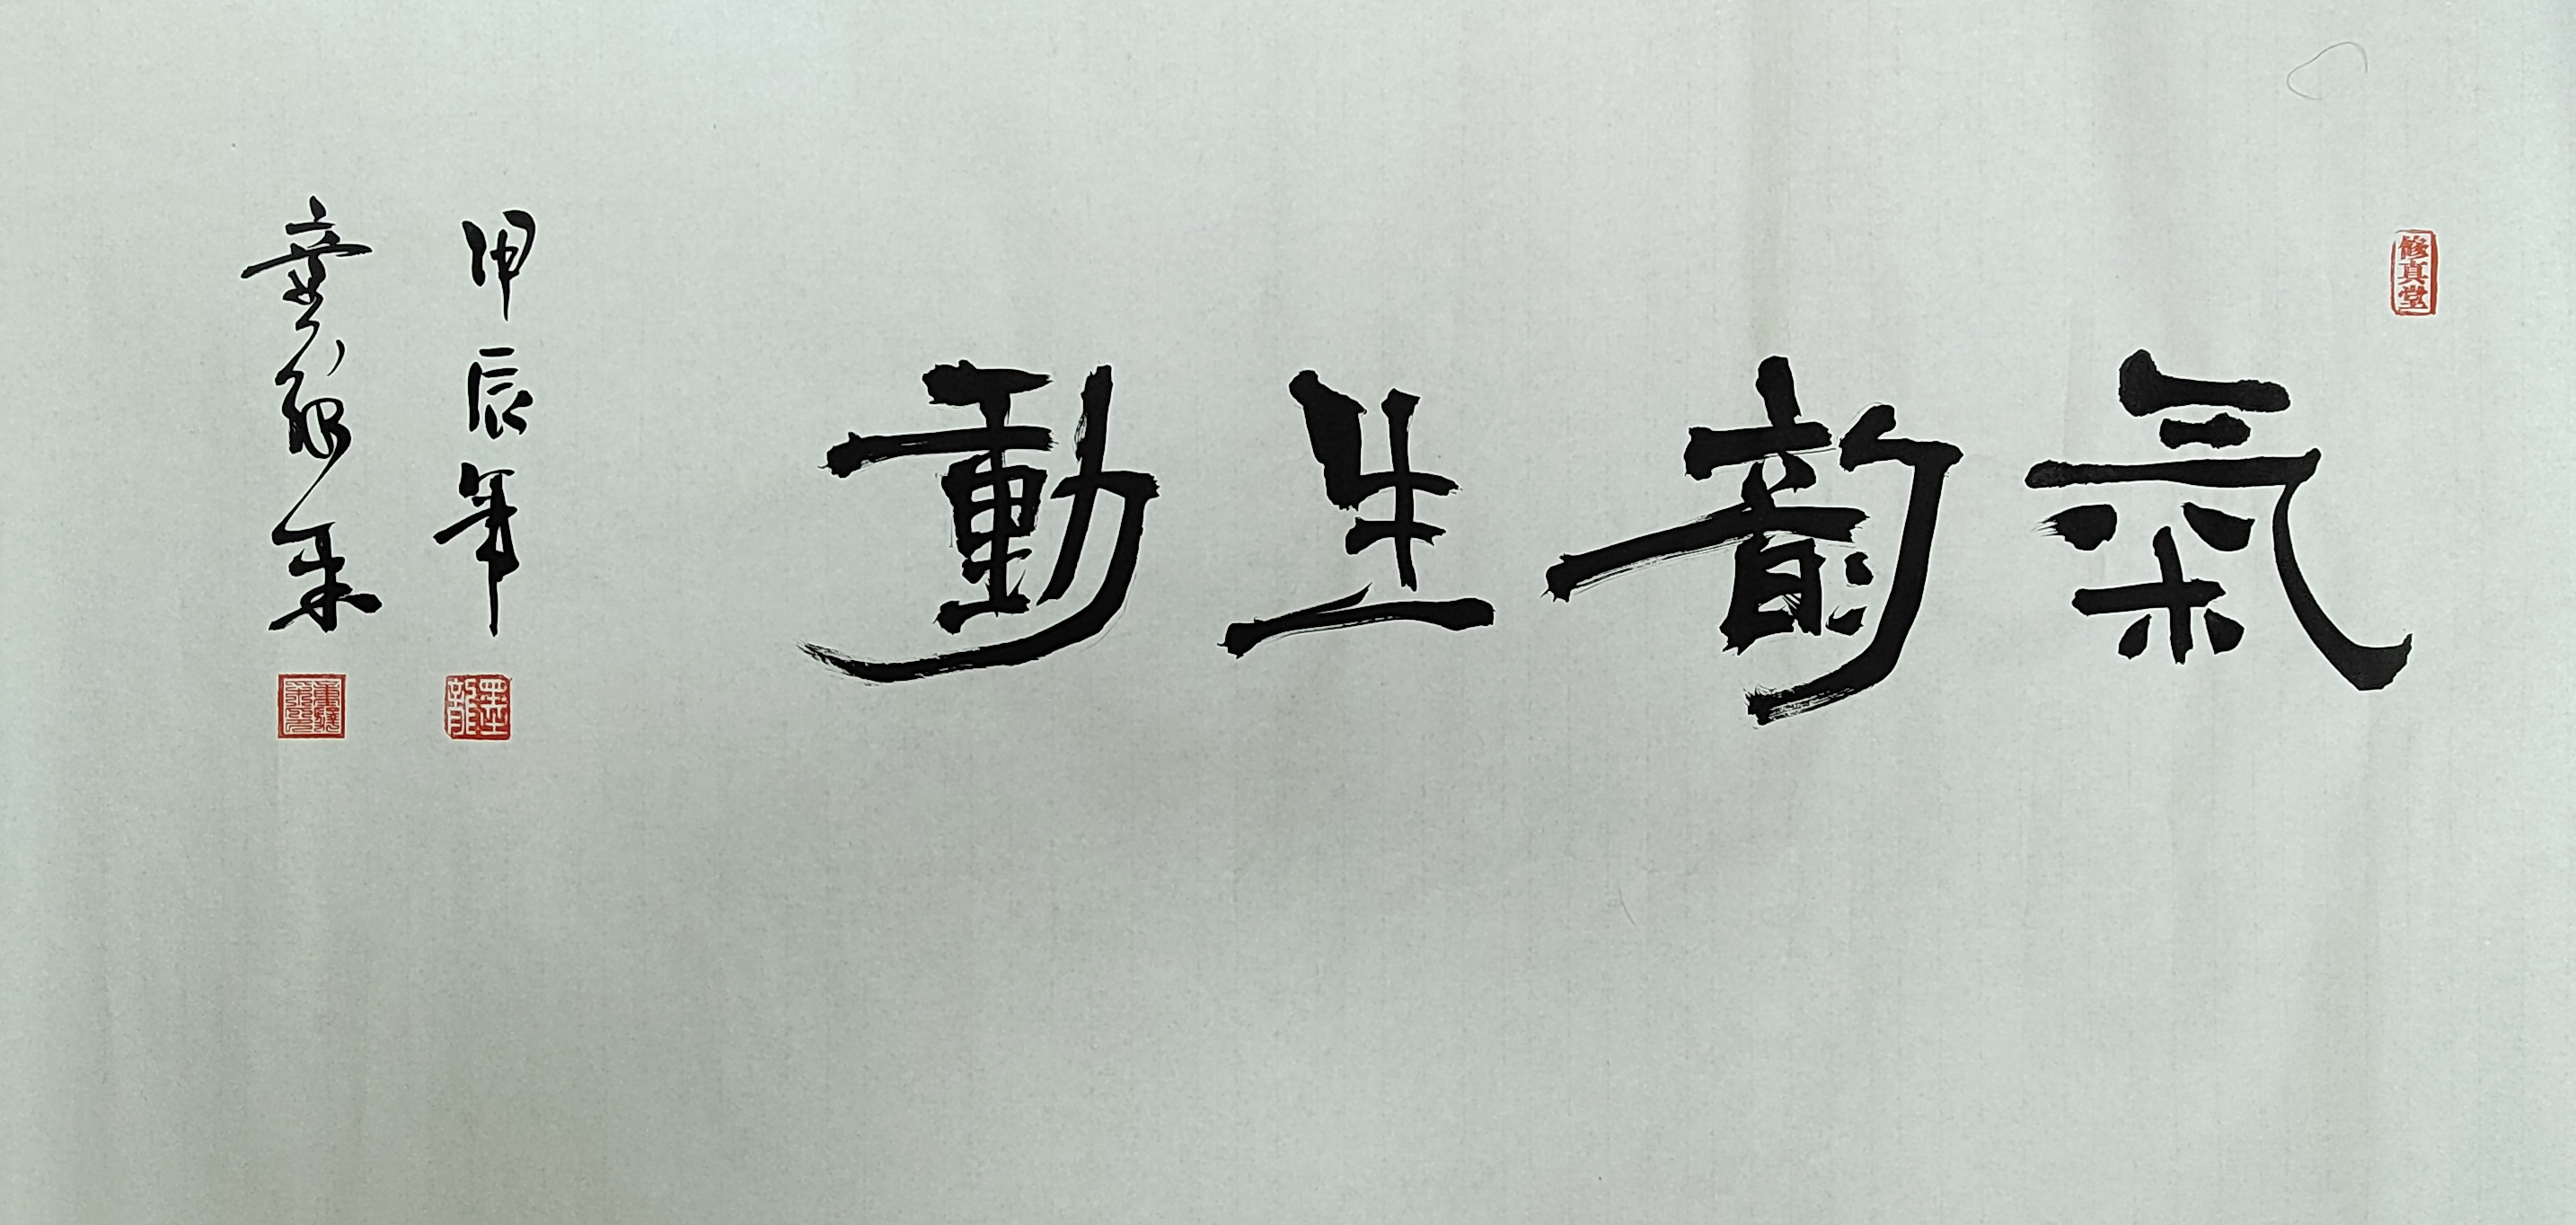 修真堂
氣韵生動
甲辰年
墨龍